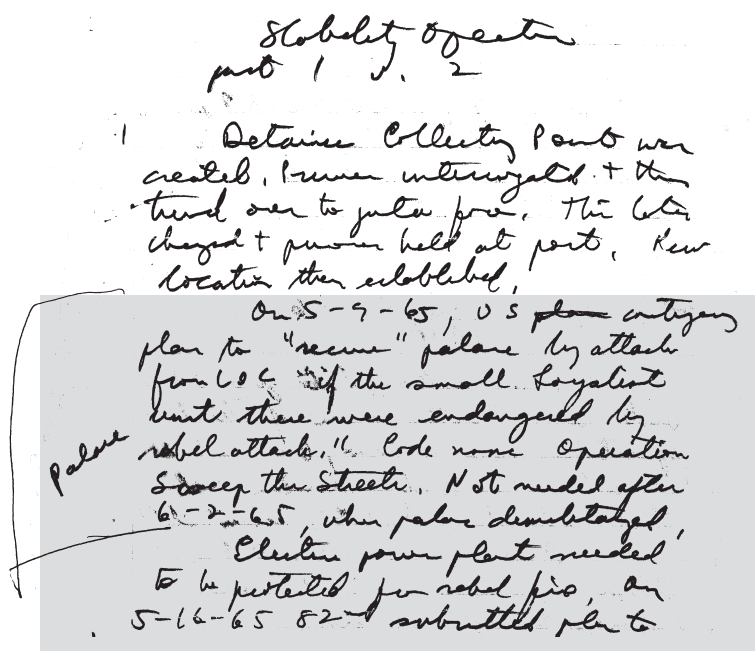 Stability Operation
part 1 v. 2
1 Detainee Collecting Point was
created. Prisoner interrogated + then
turned over to junta force. This later
changed + prisoner held at port. New
location then established.
On 5-9-65, US plan contingency
plan to "secure" palace by attack
from LOC "if the small Loyalist
unit there were endangered by
rebel attack." Code name Operation
Sweep the Streets. Not needed after
6-2-65, when palace demilitarized,
Palace
Electric power plant needed
to be protected from rebel fire. On
5-16-65 82nd submitted plan to